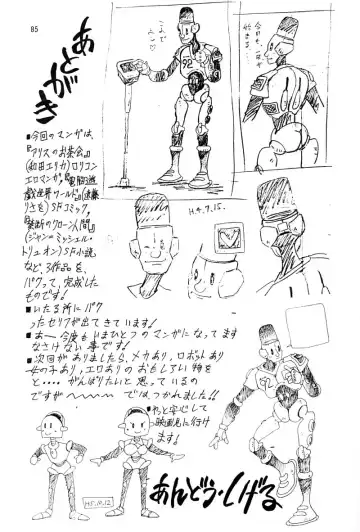 85
あとがき
これで
よし♡
今日も一日が
始まる…
H4.9.15.
■今回のマンガは、
『アリスのお茶会』
(和田エリカ)ロリコン
エロマンガ、『電脳遊
戯世界ワールド』(
りさを)SFコミック、
『禁断のクローン人間』
(ジャン=ミッシェル・
トリュオン)SF小説
など、3作品を、
パクって、完成した
ものです!
■いたる所にパク
ったセリフが出てきています!
■あー今度もいまひとつのマンガになってます
なさけない事です!
■次回がありましたら、メカあり、ロボットあり
女の子あり、エロありのおもしろい物を
と‥‥がんばりたいと思っているの
ですが〜〜〜 ではつかれました!!
■やっと安心して
映画見に行け
ます!
H5.10.12
あんどう・しげる
92